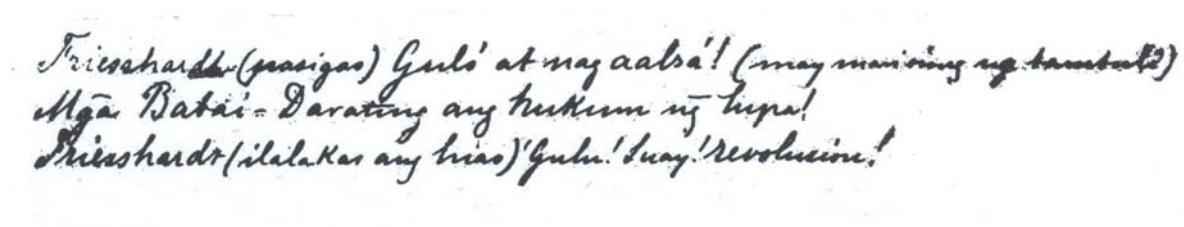 Friesshardt (pasigao) Guló at nag aalsá! (may maririnig ng̃
Mg̃a Babai - Darating ang hukum ng̃ lupa!
Friesshardt (ilalakas ang hiao) Gulu! Suay! revolucion!